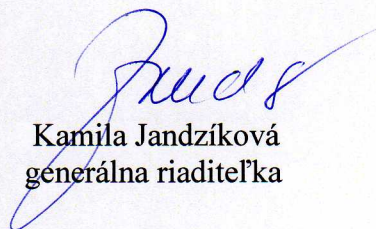 Kamila Jandzíková
generálna riaditeľka